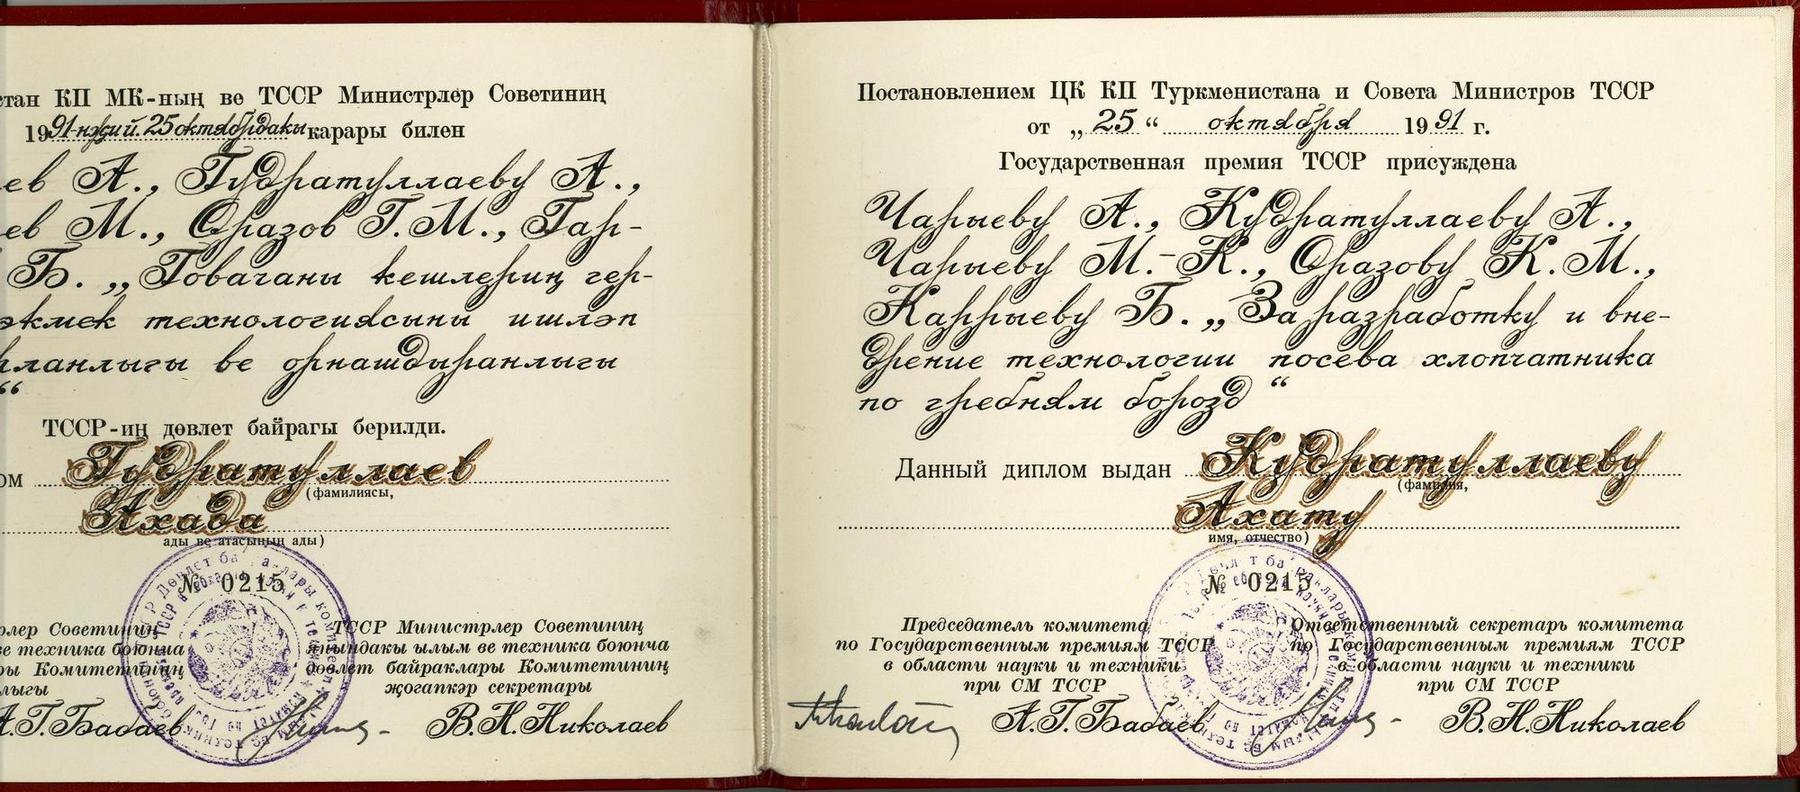 стан КП МК-ның ве ТССР Министрлер Советиниң
1991-нжи й. 25 октябрдакы карары билен
ев А., Гудратуллаеву А.,
ев М., Оразов Г.М., Гар-
Б. „Говачаны кешлериң гер-
экмек технологиясыны ишләп
ланлыгы ве орнашдыранлыгы
“
ТССР-иң дөвлет байрагы берилди.
ом Гудратуллаев
(фамилиясы,
Ахада
ады ве атасының ады)
№ 0215
рлер Советиниң
ве техника боюнча
ры Комитетиниң
лыгы
ТССР Министрлер Советиниң
янындакы ылым ве техника боюнча
дөвлет байраклары Комитетиниң
җогапкәр секретары
А.Г.Бабаев
В.Н.Николаев
Постановлением ЦК КП Туркменистана и Совета Министров ТССР
от „25“ октября 1991 г.
Государственная премия ТССР присуждена
Чарыеву А., Кудратуллаеву А.,
Чарыеву М.-К., Оразову К.М.,
Каррыеву Б. „За разработку и вне-
дрение технологии посева хлопчатника
по гребням борозд“
Данный диплом выдан Кудратуллаеву
(фамилия,
Ахату
имя, отчество)
№ 0215
Председатель комитета
по Государственным премиям ТССР
в области науки и техники
при СМ ТССР
А.Г.Бабаев
Ответственный секретарь комитета
по Государственным премиям ТССР
в области науки и техники
при СМ ТССР
В.Н.Николаев